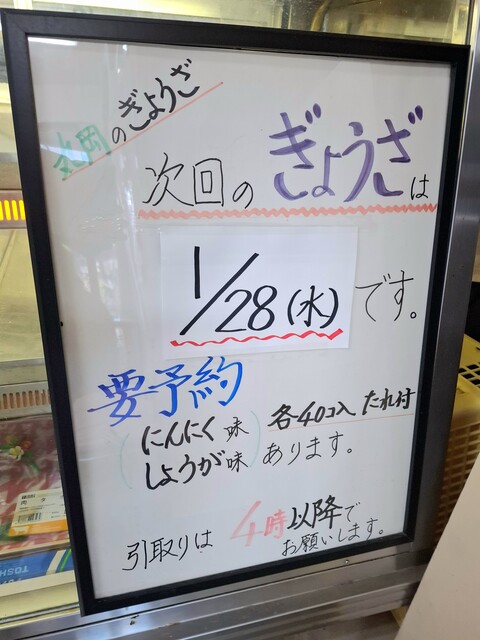 丸岡のぎょうざ
次回のぎょうざは
1/28(水)です。
要予約
(にんにく味
しょうが味)
各40コ入 たれ付
あります。
引取りは4時以降で
お願いします。
TOSH